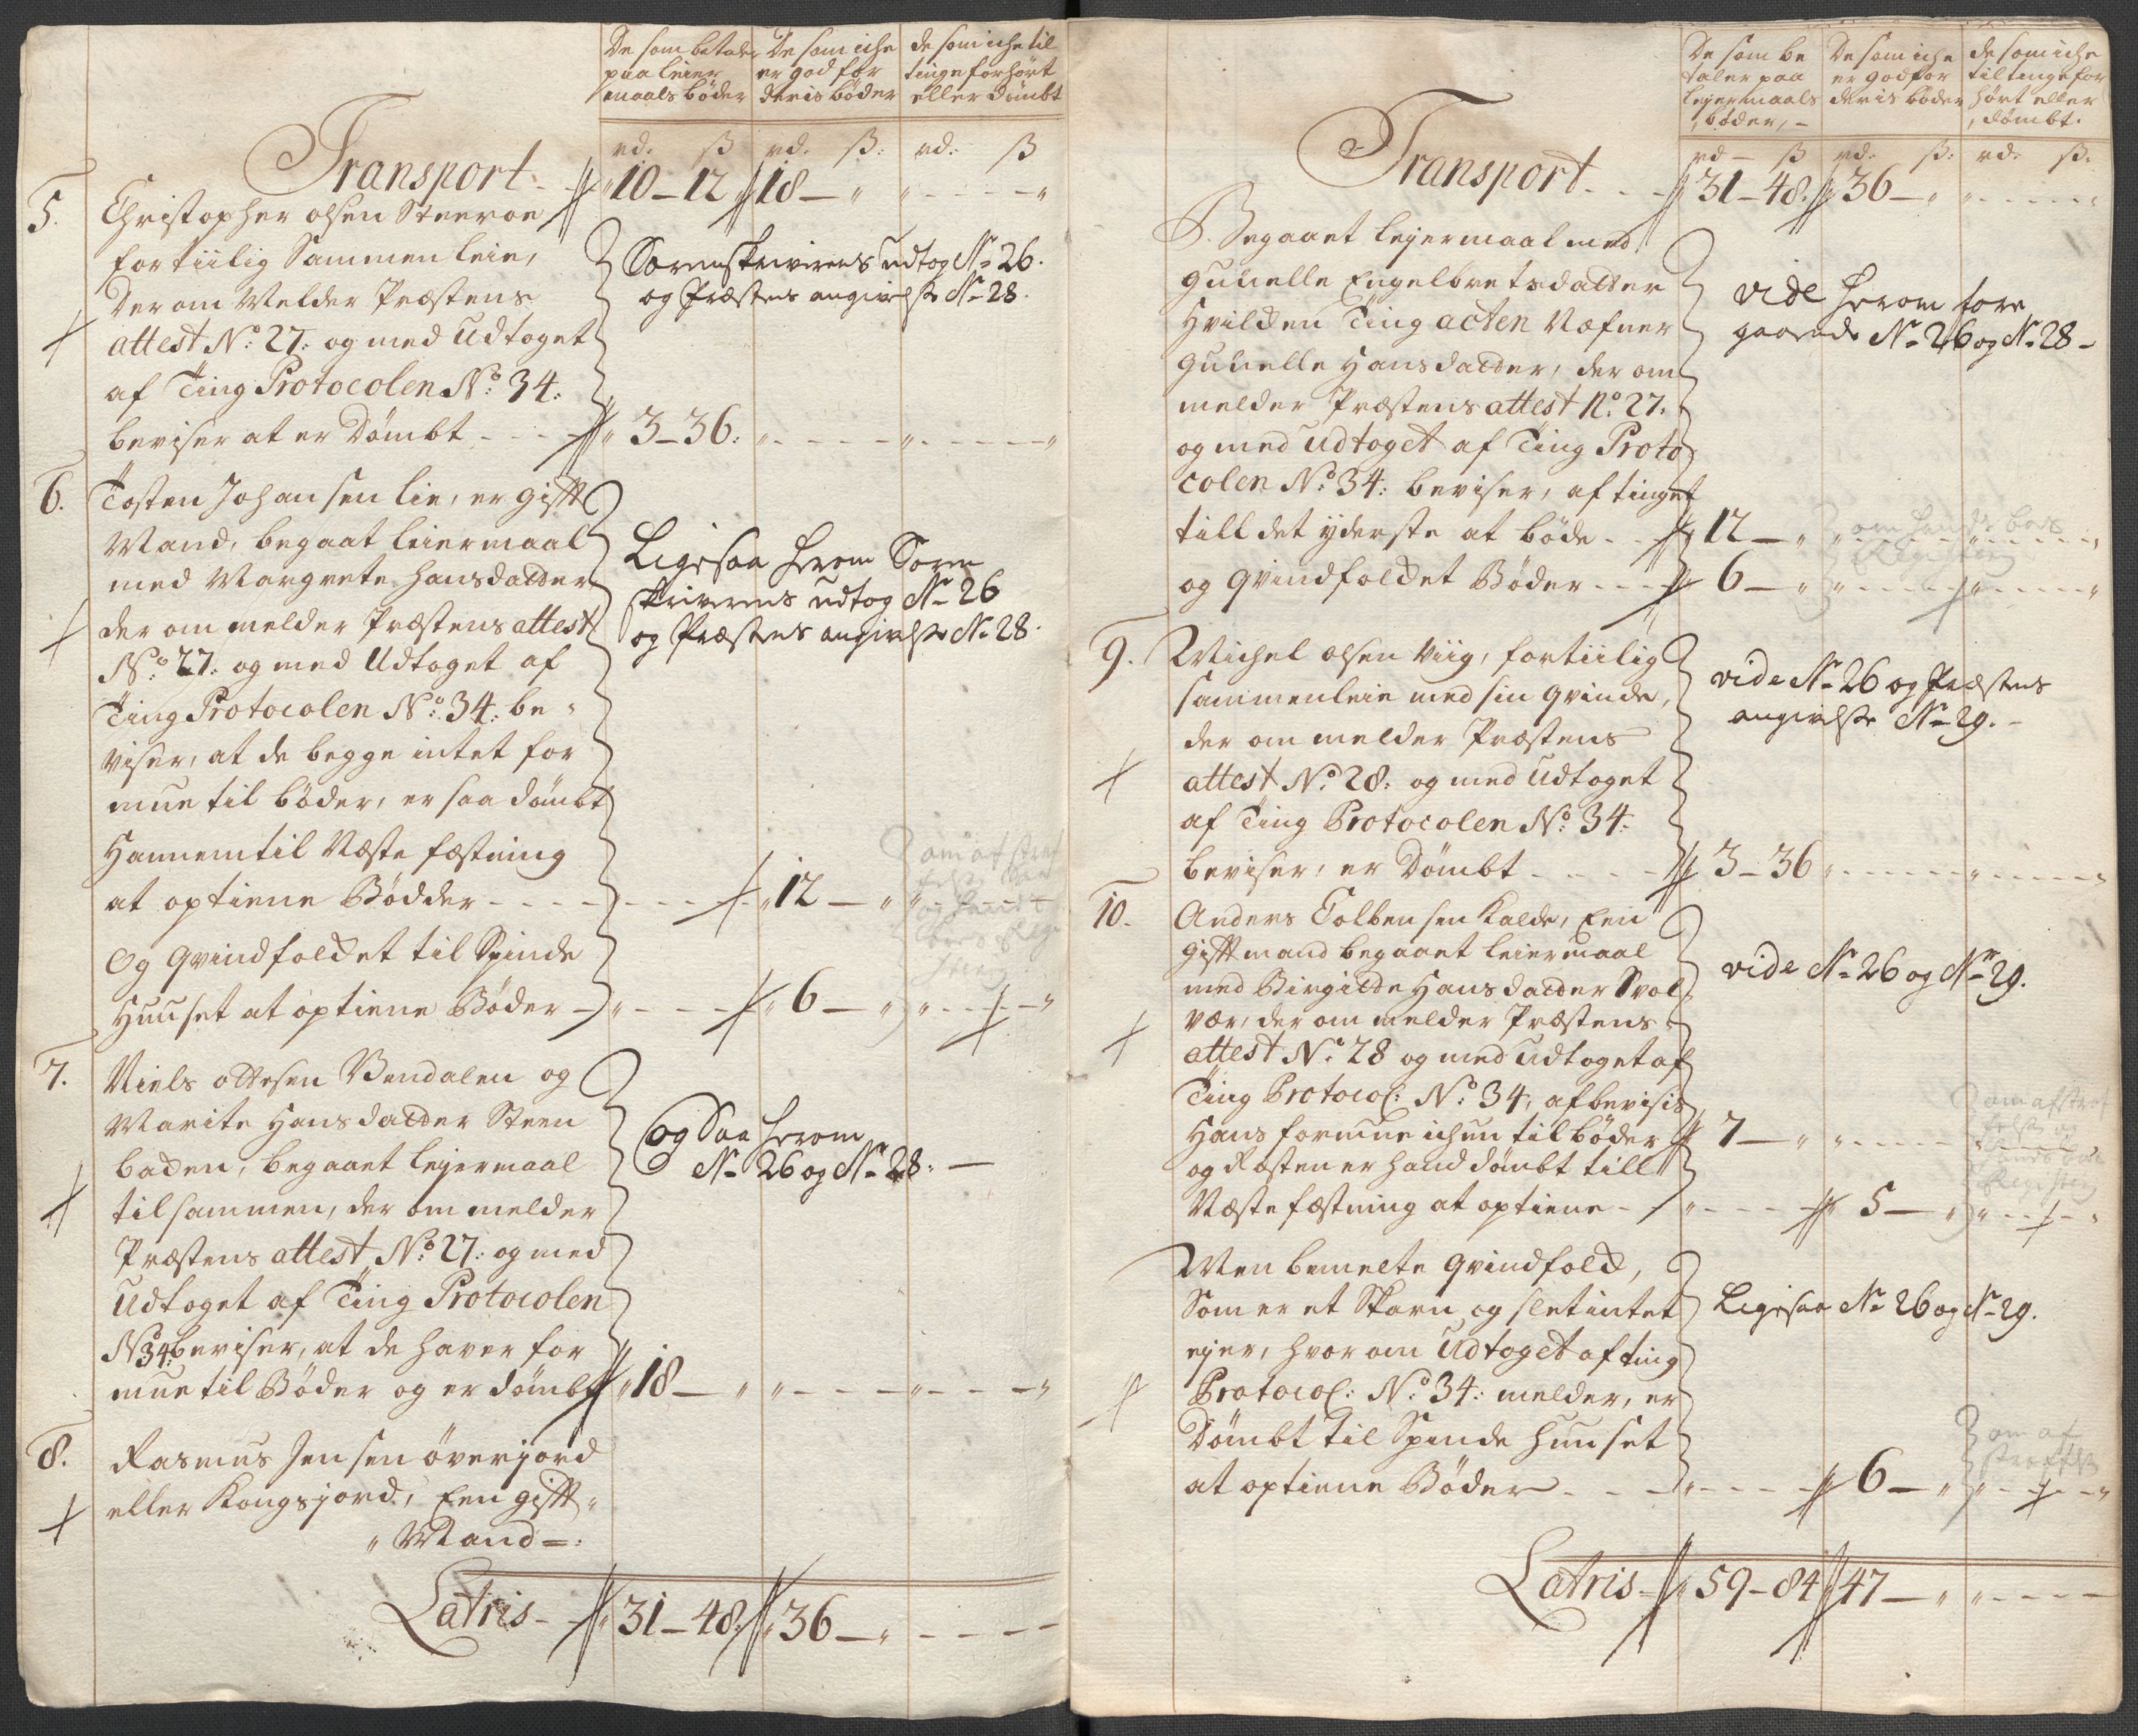 De som betaler
paa leier
maals böder
De som iche
er god for
deris böder
de som iche til
tinge forhört
eller dömbt
rd. ß rd. ß: rd: ß
Transport 10 - 12 18 -
5. Christopher olsen Steeroe
for tiilig Sammenleie,
Der om Melder Præstens
attest No: 27: og med Udtoget
af Ting Protocolen No: 34:
beviser at er Dömbt 3 - 36:
Sorenskriverens udtog No 26.
og Præstens angivelse No 28.
6. Tosten Johansen lie, er gifft
Mand, begaat leiermaal
med Margrete Hansdatter
der om melder Præstens attest
No: 27: og med Udtoget af
Ting Protocolen No: 34: be
viser, at de begge intet for
mue til böder, er saa dömbt
Hannem til Næste fæstning
at optiene Bödder 12 -
og qvindfolchet til Spinde
Huuset at optiene Böder 6 -
Ligesaa herom Soren
skriverens udtog No 26
og Præstens angivelse No 28.
7. Niels ottesen Bendalen og
Marite Hansdatter Steen
baden, begaaet lejermaal
tilsammen, der om melder
Præstens attest No: 27: og med
Udtoget af Ting Protocolen
No 34: beviser, at de haver for
mue til Böder og er dömbt 18 -
Og Saa herom
No 26 og No 28: -
8. Rasmus Jensen överjord
eller Kongsjord, Een gifft
Mand =:
Latris 31 - 48. 36 -
De som be
taler paa
lejermaals
böder, -
De som iche
er god for
deris böder
de som iche
til tinge for
hört eller
dömbt.
rd - ß rd. ß: rd. ß.
Transport 31 - 48. 36 -
Begaaet lejermaal med
gunelle Engelbretsdatter
Hvilchen Ting acten Næfner
gunelle Hansdatter, der om
melder Præstens attest No: 27.
og med udtoget af Ting Proto
colen No: 34: beviser, af tinget
till det yderste at böde 12 -
og qvindfolchet Böder 6 -
vide herom fore
gaaende No 26 og No 28 -
9. Michel olsen Viig, fortiilig
sammenleie med sin qvinde,
der om melder Præstens
attest No: 28: og med Udtoget
af Ting Protocolen No: 34:
beviser, er Dömbt 3 - 36
vide No 26 og Præstens
angivelse No 29. -
10. Anders Tolbensen Kalde, Een
gifft mand begaaet leiermaal
med Birgitte Hansdatter Svol
vær, der om melder Præstens
attest No: 28 og med Udtoget af
Ting Protocol: No: 34, afbevisis
Hans formue ichun til böder 7 -
og Resten er hand dömbt till
Næste fæstning at optiene 5 -
vide No 26 og No 29.
Men bemelte qvindfolch,
Som er et Skarn og slet intet
ejer, hvor om Udtoget af ting
Protocol: No: 34: melder, er
Dömbt til Spinde Huuset
at optiene Böder 6 -
Ligesaa No 26 og No 29.
Latris 59 - 84 47 -